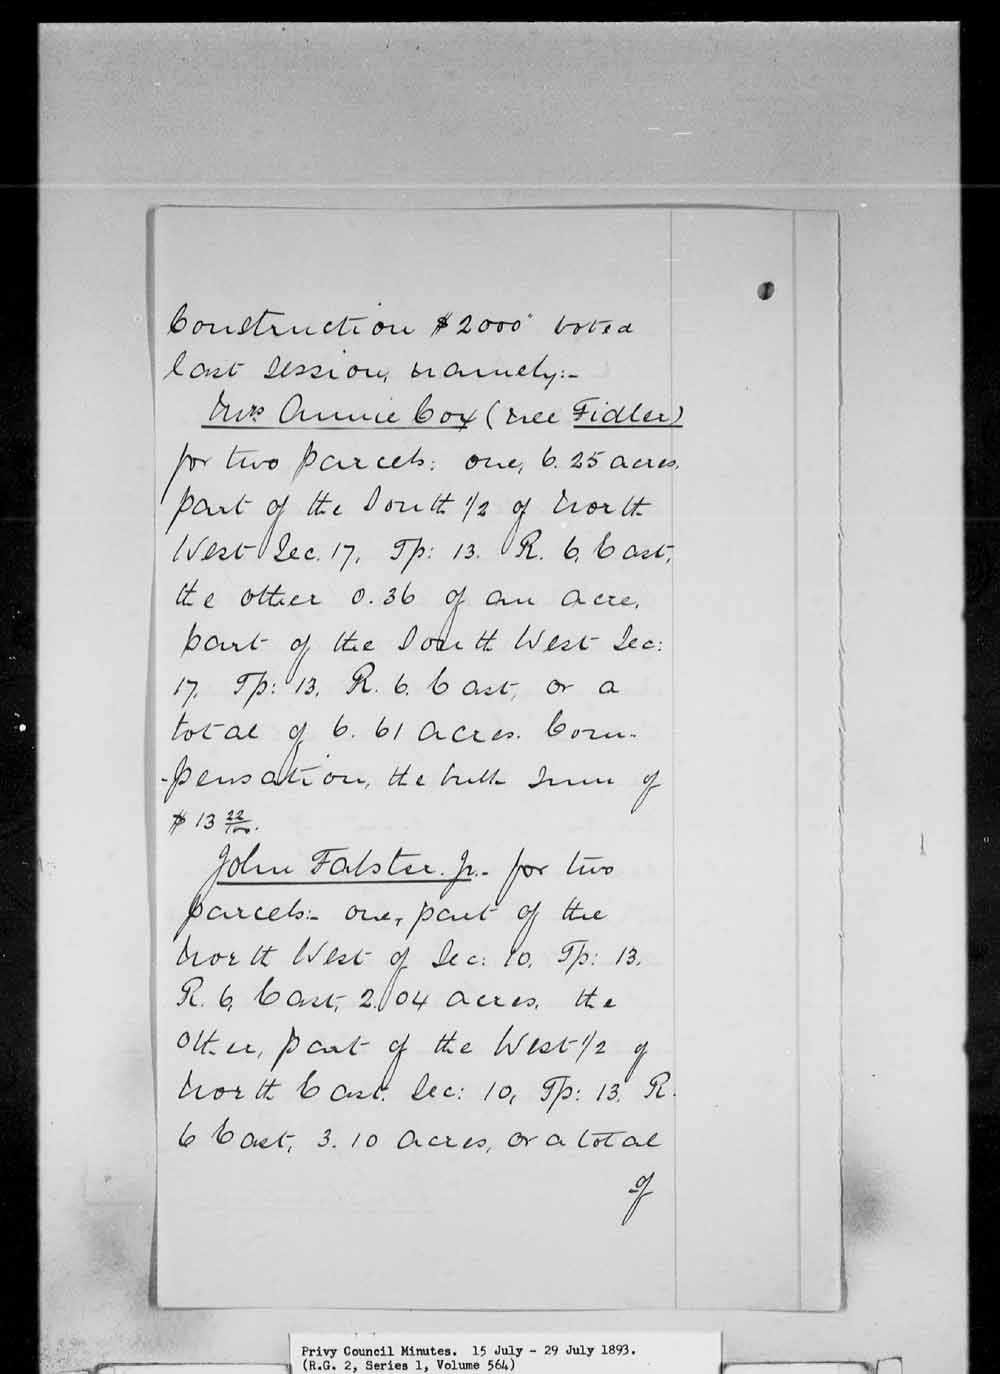 Construction $2000 voted
last session, namely:-
Mrs Annie Cox (nee Fidler)
for two parcels: one, 6.25 acres,
part of the South 1/2 of North
West Sec. 17, Tp: 13. R. 6, East,
the other 0.36 of an acre,
part of the South West Sec:
17, Tp: 13, R. 6. East, or a
total of 6.61 acres. Com-
-pensation, the bulk sum of
$13 22/100.
John Falster. Jr.- for two
parcels:- one, part of the
North West of Sec: 10, Tp: 13.
R. 6, East, 2.04 acres, the
other, part of the West 1/2 of
North East Sec: 10, Tp: 13. R.
6 East, 3.10 acres, or a total
of
Privy Council Minutes. 15 July - 29 July 1893.
(R.G. 2, Series 1, Volume 564)